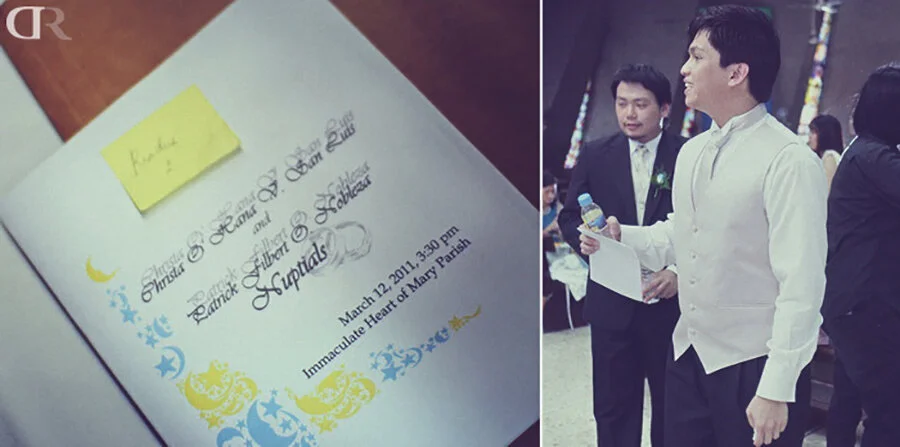 DR
Reader
1
Christa & Hana V. San Luis
and
Patrick Filbert G. Nobleza
Nuptials
March 12, 2011, 3:30 pm
Immaculate Heart of Mary Parish